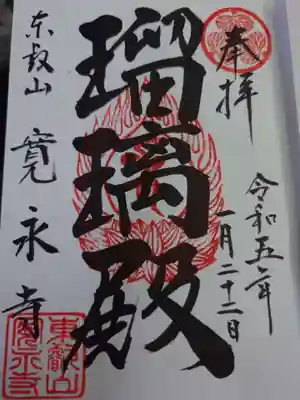 奉拝
令和五年
一月二十二日
瑠璃殿
東叡山
寛永寺
東叡山
寛永寺